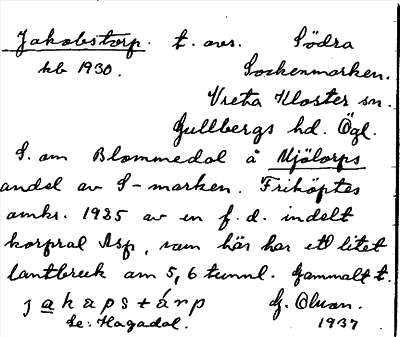 Jakobstorp. t. avs. Södra
kb 1930. Sockenmarken.
Vreta Kloster sn.
Gullbergs hd. Ögl.
S. om Blommedal å Mjölorps
andel av S-marken. Friköptes
omkr. 1925 av en f. d. indelt
korpral Asp, som här har ett litet
lantbruk om 5,6 tunnl. Gammalt t.
jakapstårp G. Olson.
Se: Hagadal. 1937